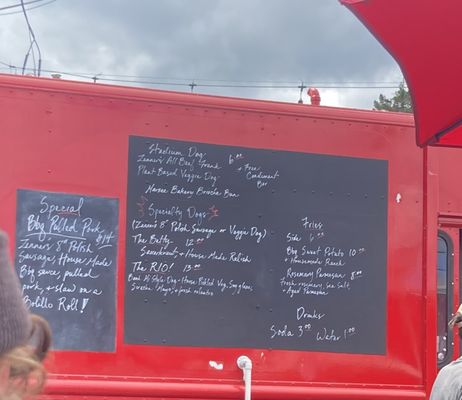 Special
Bbq Pulled Pork
$14
Zenner's 8" Polish
Sausage, House Made
Bbq sauce, pulled
pork, & slaw on a
Bolillo Roll!
Stadium Dog
Zenner's All Beef Frank 6.00
Plant Based Veggie Dog
+ Free Condiment
Bar
Bakery Brioche Bun
Specialty Dogs
(Zenner's 8" Polish Sausage or Veggie Dog)
The Betty 12.00
Sauerkraut + House Made Relish
The RIO! 13.00
Style Dog - House Pickled Veg,
Sriracha Mayo, + fresh cilantro
Fries
Side 6.00
Bbq Sweet Potato 10.00
+ Housemade Ranch
Rosemary Parmesan 8.00
Fresh rosemary, sea salt,
+ Aged Parmesan
Drinks
Soda 3.00 Water 1.00